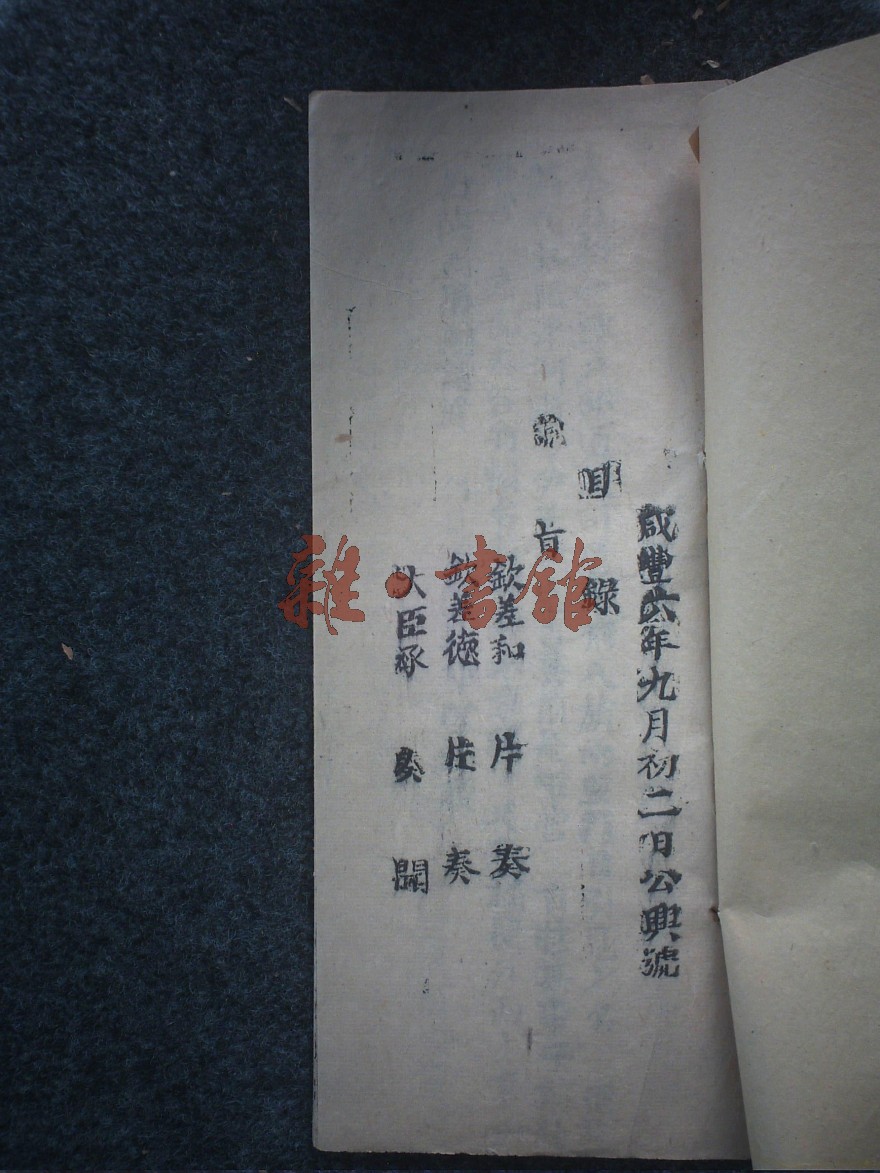 咸豐六年九月初二日公興號
目錄
諭旨
欽差和 片奏
欽差德 片奏
大臣承 奏聞
雜·書館